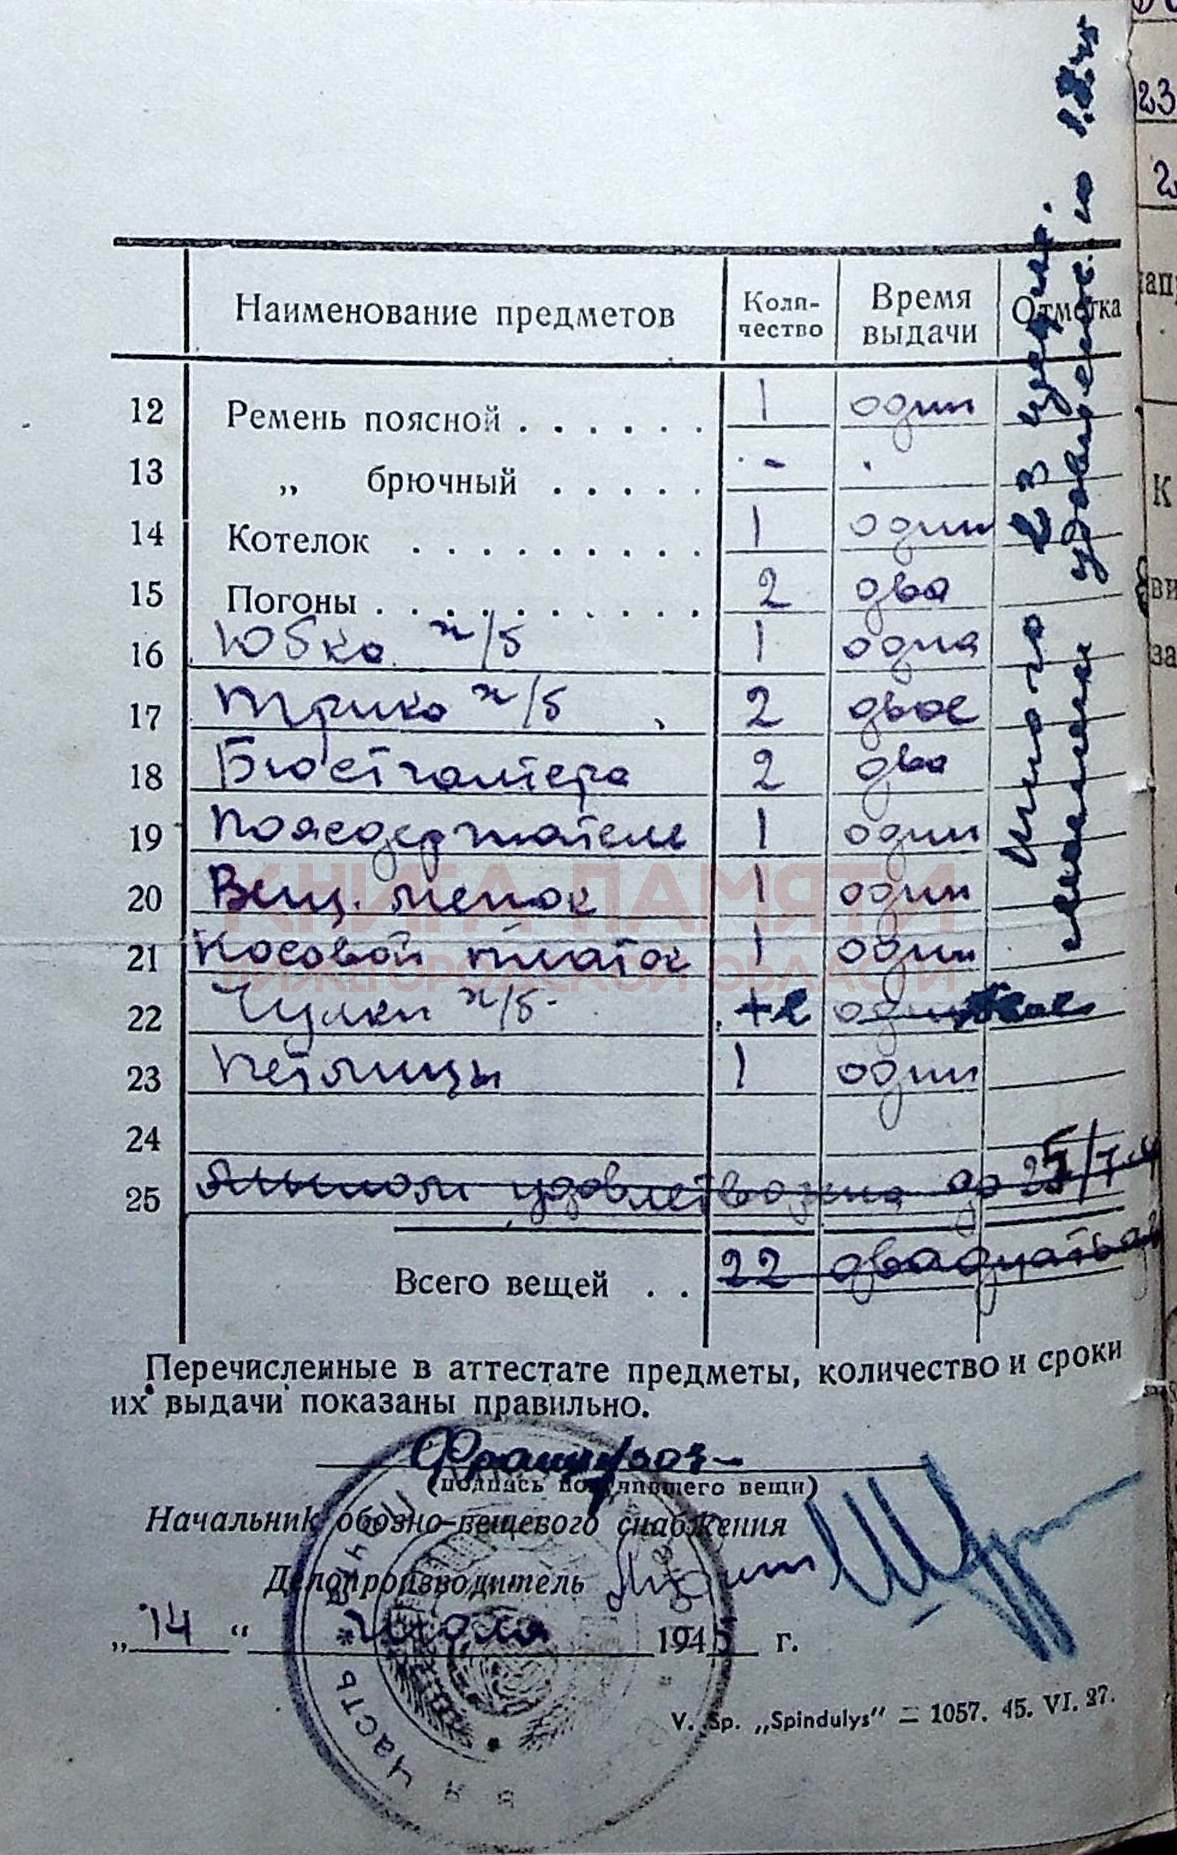 Наименование предметов Коли-чество Время выдачи Отметка
12 Ремень поясной . . . . . . 1 один
13 „ брючный . . . . . -
14 Котелок . . . . . . . . . . 1 один
15 Погоны . . . . . . . . . . . 2 два
16 Юбка х/б 1 одна
17 Трико х/б 2 двое
18 Бюстгалтера 2 два
19 Поясодержатель 1 один
20 Вещ. мешок 1 один
21 Носовой платок 1 один
22 Чулки х/б 2 двое
23 Петлицы 1 один
24
25 удовлетворена до 25/
Всего вещей . . 22
Итого 23
КНИГА ПАМЯТИ
НИЖЕГОРОДСКОЙ ОБЛАСТИ
Перечисленные в аттестате предметы, количество и сроки
их выдачи показаны правильно.
(подпись получившего вещи)
Начальник обозно-вещевого снабжения
Делопроизводитель
„ 14 “ Июля 1945 г.
V. Sp. „Spindulys“ — 1057. 45. VI. 27.
часть
23
2
К
ви
за